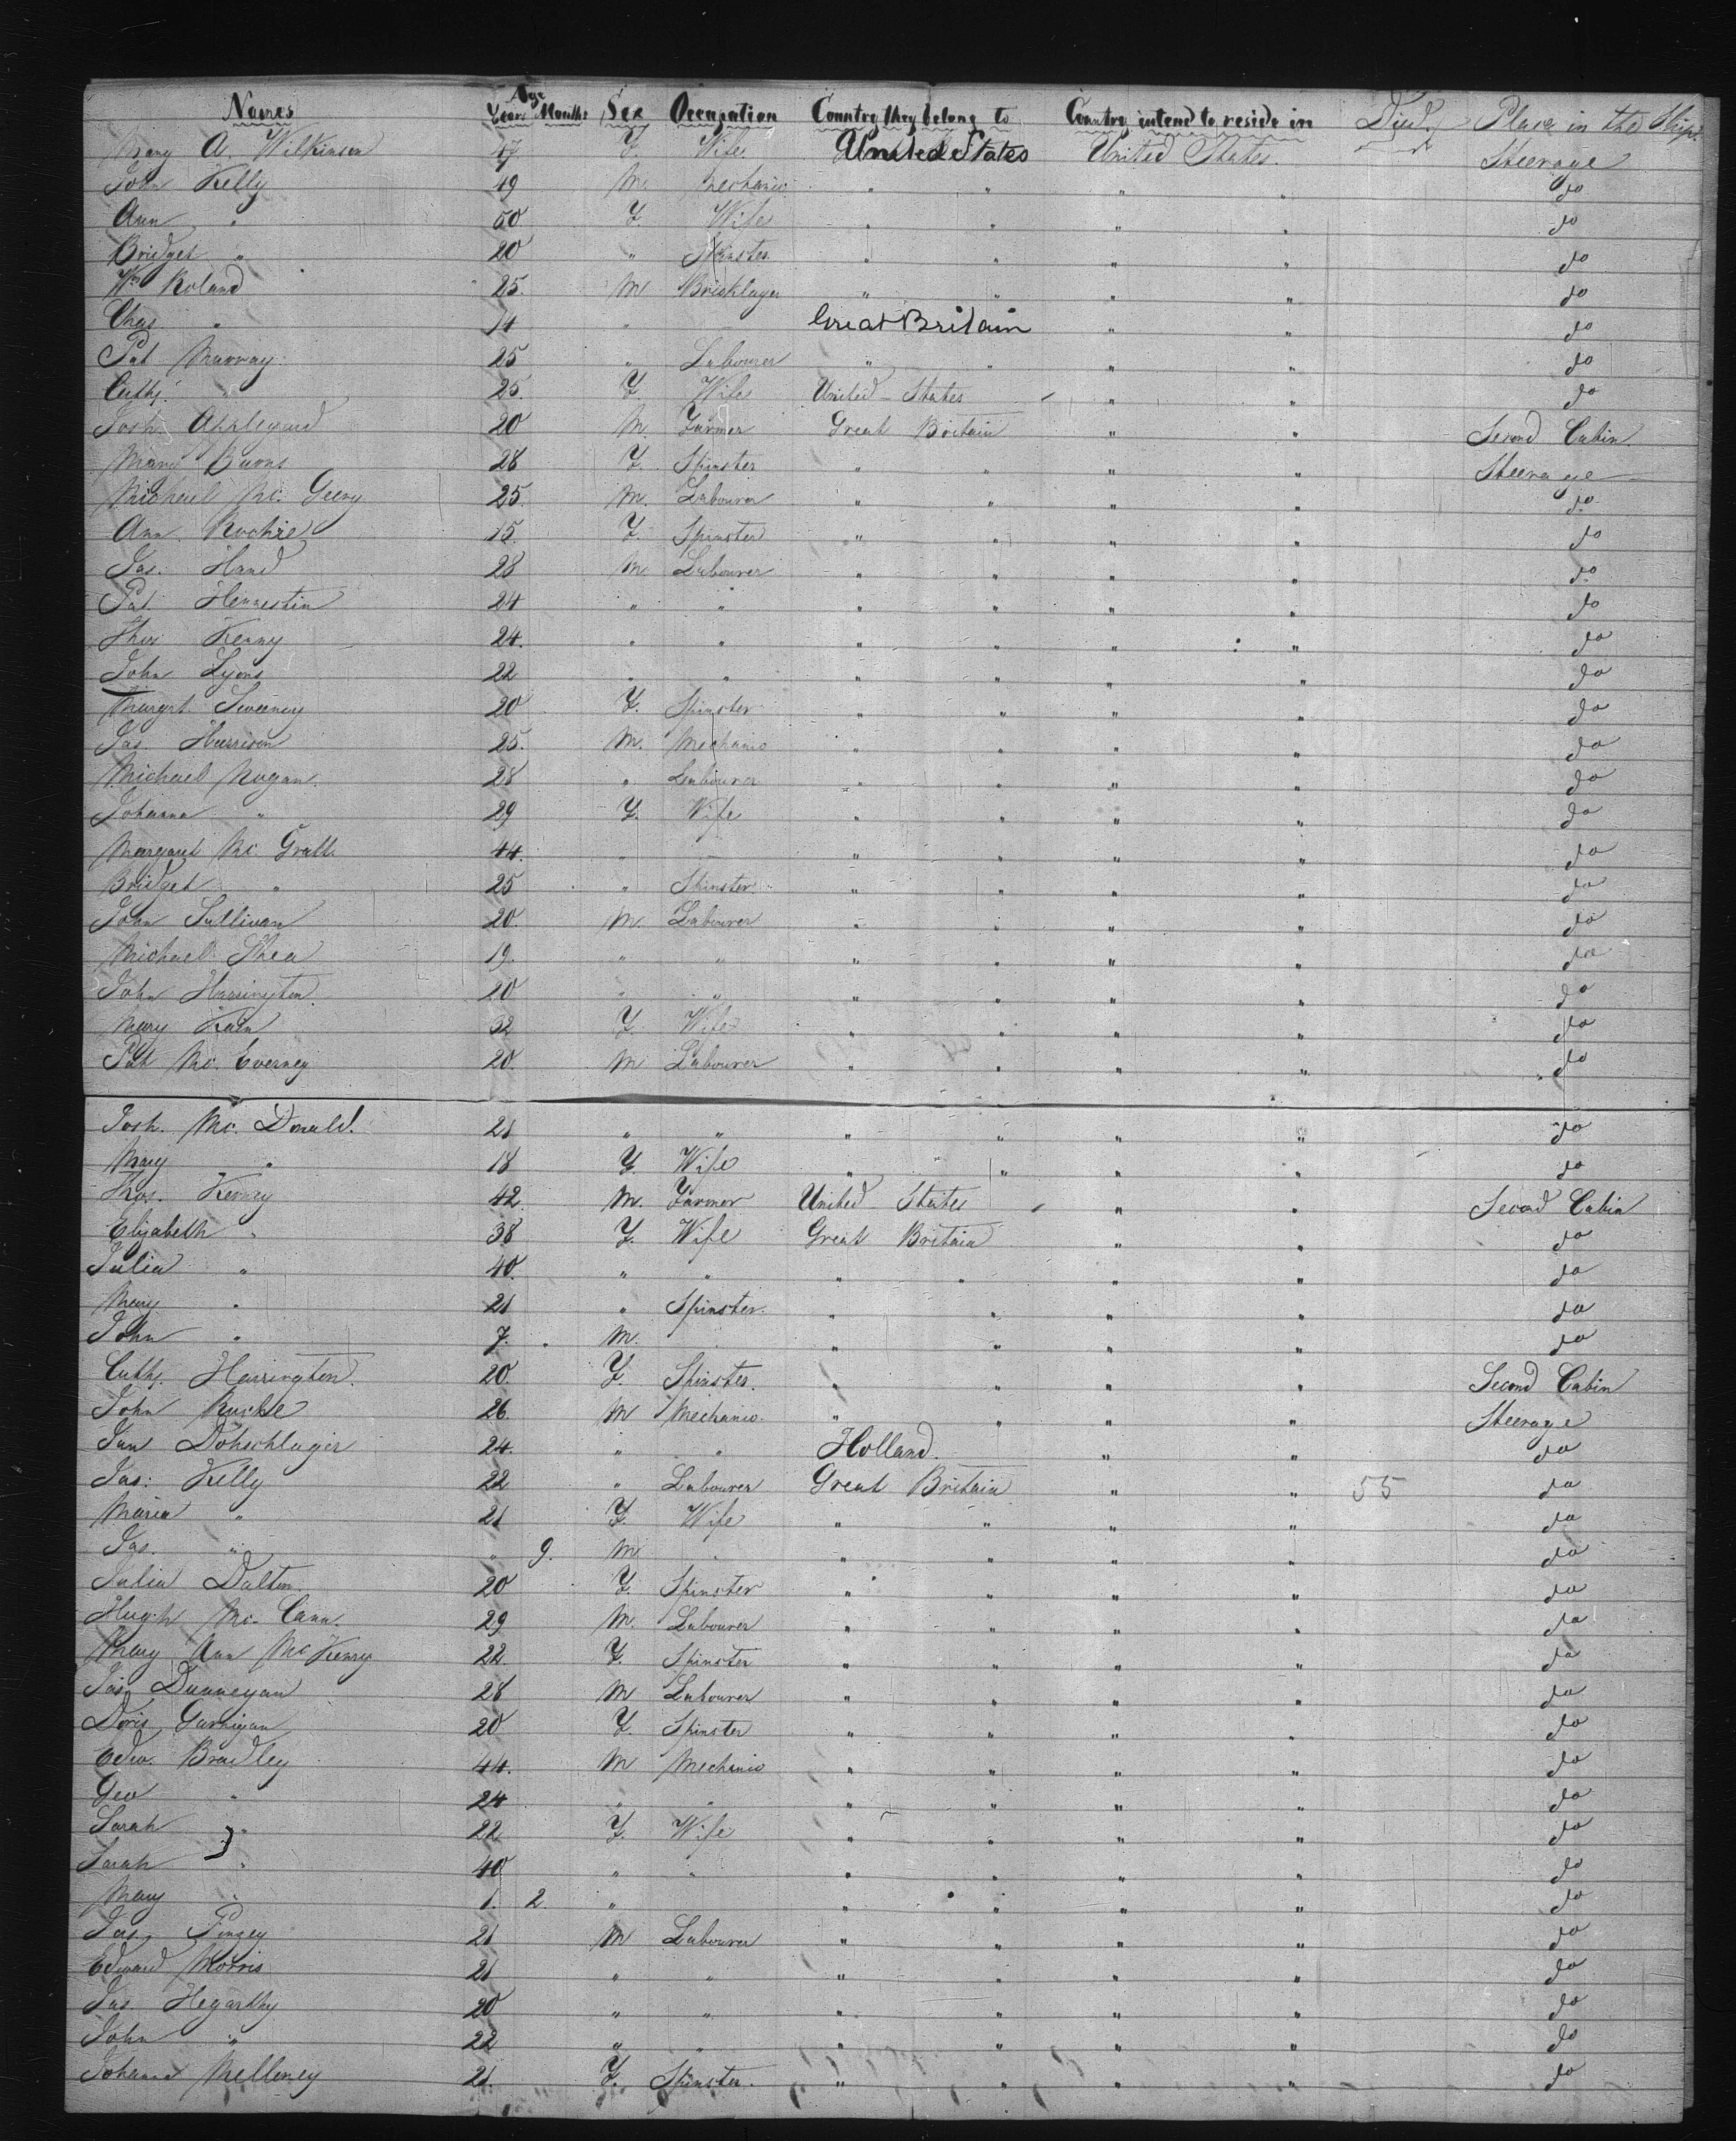 Names Age Years Months Sex Occupation Country they belong to Country intend to reside in Died Place in the Ship
Mary A. Wilkinson 47 F Wife United States United States. Steerage
John Kelly 49 M. Mechanic " " " " do
Ann " 50 F. Wife " " " " do
Bridget " 20 " Spinster " " " " do
Wm Roland 25. M Bricklayer " " " " do
Chas " 14 " Great Britain " " do
Pat Murray 25 " Labourer " " " " do
Cath. " 25. F. Wife United States " " do
Josh. Appleyard 20 M. Farmer Great Britain " " Second Cabin
Mary Burns 28 F. Spinster " " " " Steerage
Michael Mc. 25. M. Labourer " " " " do
Ann 15. F. Spinster " " " " do
Jas. Hand 28 M. Labourer " " " " do
Pat 24 " " " " " " do
Thos Kenny 24. " " " " " " do
John Lyons 22 " " " " " " do
Margrt. Sweeney 20 F. Spinster " " " " do
Jas. Harrison 25. M. Mechanic " " " " do
Michael Nogan 28 " Labourer " " " " do
Johanna " 29 F. Wife " " " " do
Margaret Mc. Grath 44. " " " " " do
Bridget " 25 " Spinster " " " " do
John Sullivan 20. M. Labourer " " " " do
Michael Shea 19. " " " " " " do
John Harrington. 20 " " " " " " do
Mary Kain 32 F. Wife " " " " do
Pat Mc. Everney 20. M Labourer " " " " do
Josh. Mc. Donald. 21 " " " " " " do
Mary " 18 F. Wife " " " " do
Thos. Kenny 42. M. Farmer United States " " Second Cabin
Elizabeth " 38 F. Wife Great Britain " " do
Julia " 40. " " " " " " do
Mary " 21 " Spinster. " " " " do
John " 7. M. " " " " do
Cath. Harrington. 20. F. Spinster. " " " " Second Cabin
John 26. M Mechanic. " " " " Steerage
Jan Dohschlager 24. " " Holland. " " do
Jas: Kelly 22 " Labourer Great Britain " " 55 do
Maria " 21 F. Wife " " " " do
Jas. " " 9. M " " " " do
Julia Dalton. 20 F. Spinster " " " " do
Hugh Mc. Cann. 29 M. Labourer " " " " do
Mary Ann Mc Kenry 22. F. Spinster " " " " do
Jas. Dunnegan 28 M Labourer " " " " do
Doris Garrigan 20 F. Spinster " " " " do
Edw. Bradley 44. M Mechanic " " " " do
Geo " 24 " " " " " " do
Sarah " 22 F. Wife " " " " do
Sarah " 40 " " " " " " do
Mary " 1. 2. " " " " " do
Jas. 21 M Labourer " " " " do
Edward Morris 21 " " " " " " do
Jas. Hegarthy 20 " " " " " " do
John " 22 " " " " " " do
Johanna Melleney 21. F. Spinster. " " " " do